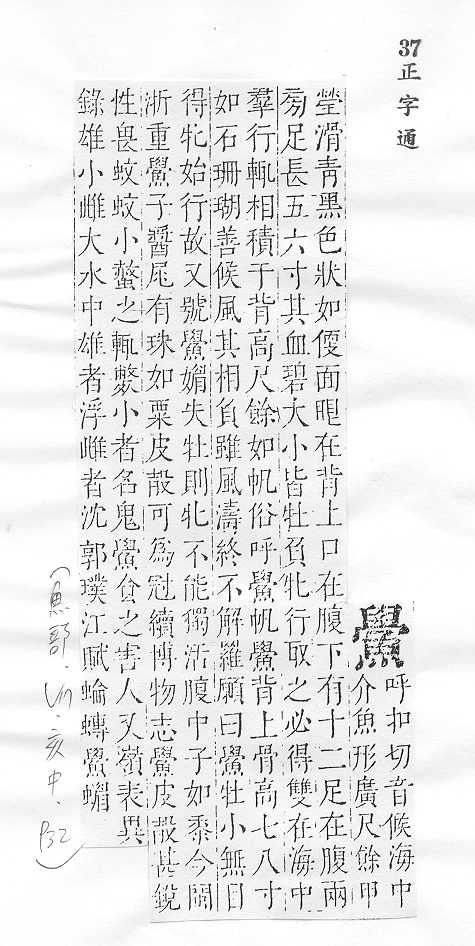 37
正字通
鱟
呼扣切音候海中
介魚形廣尺餘甲
瑩滑青黑色狀如便面眼在背上口在腹下有十二足在腹兩
旁足長五六寸其血碧大小皆牡負牝行取之必得雙在海中
羣行輒相積于背高尺餘如帆俗呼鱟帆鱟背上骨高七八寸
如石珊瑚善候風其相負雖風濤終不解羅願曰鱟牡小無目
得牝始行故又號鱟媚失牡則牝不能獨活腹中子如黍今閩
浙重鱟子醬尾有珠如粟皮殼可為冠續博物志鱟皮殼甚銳
性畏蚊蚊小螫之輒斃小者名鬼鱟食之害人又嶺表異
錄雄小雌大水中雄者浮雌者沈郭璞江賦蜦䗠鱟蝞
(魚部. 亥中. P32)